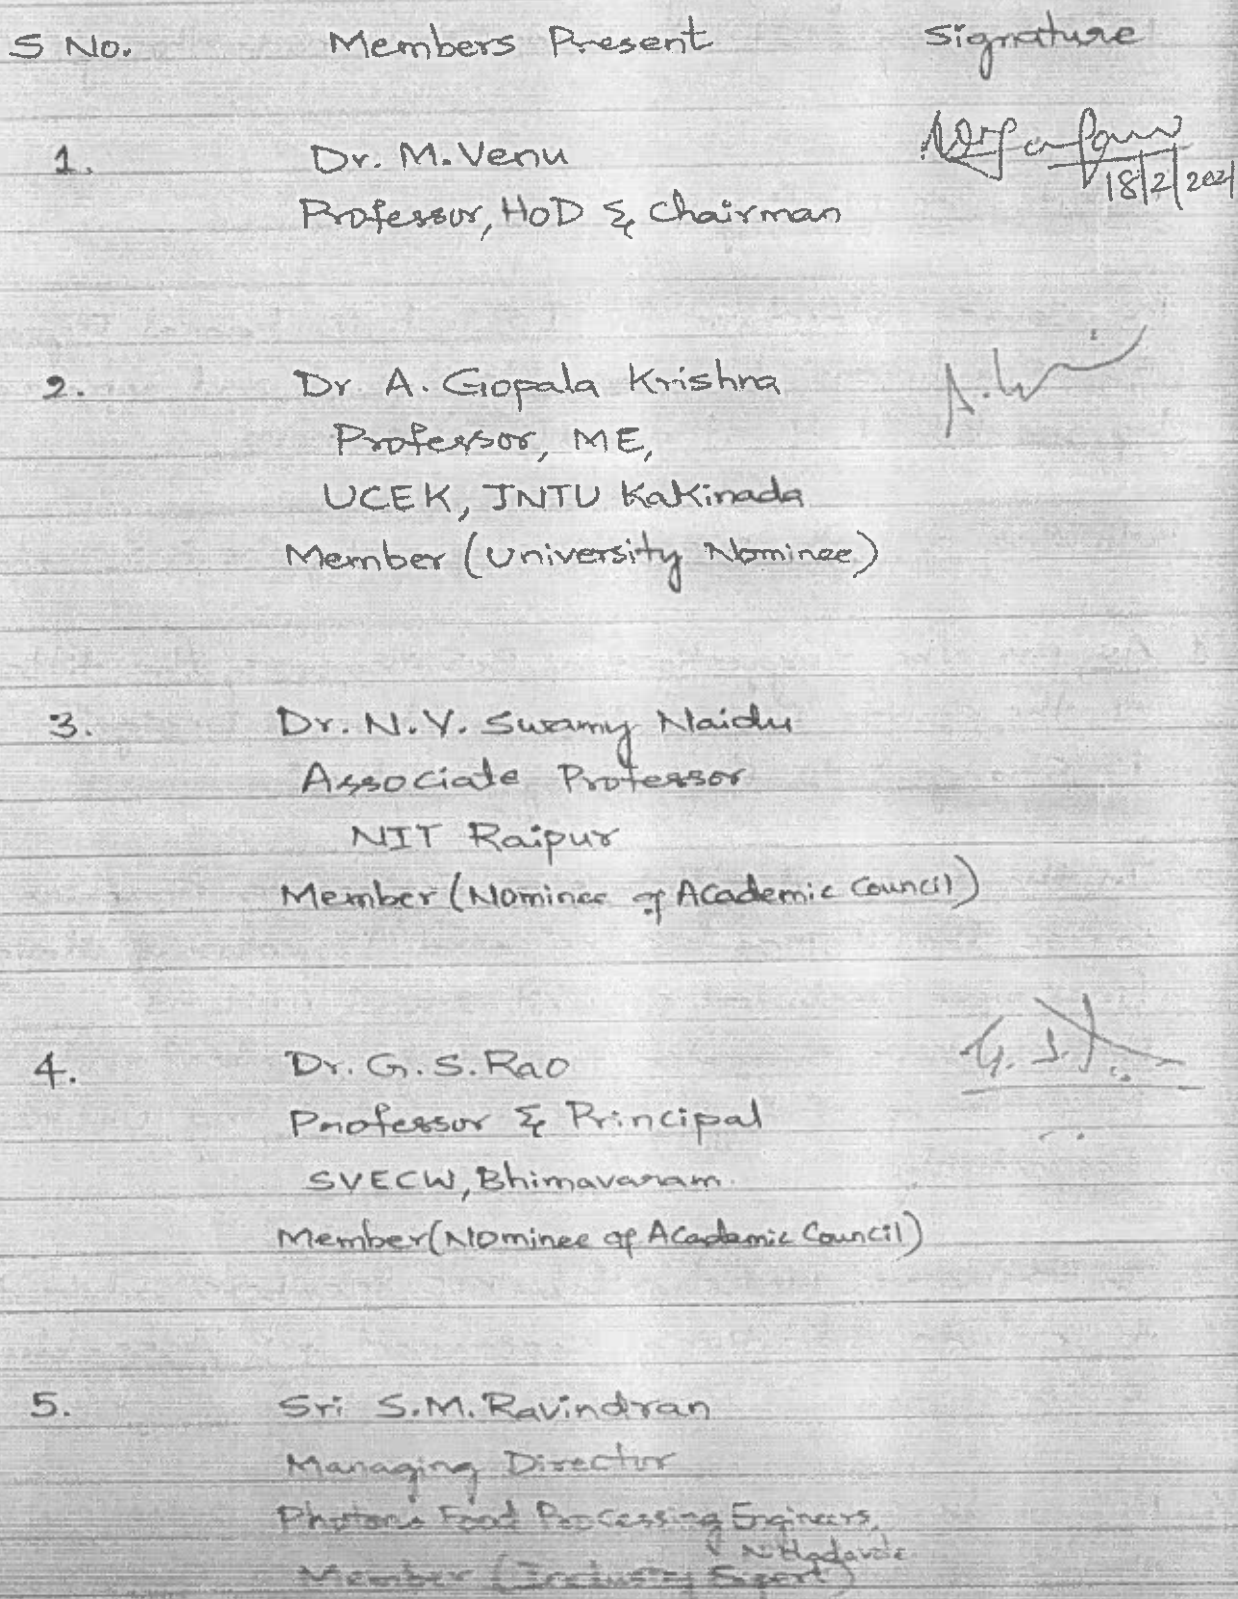 S No. Members Present Signature
1. Dr. M. Venu
Professor, HoD & Chairman
18/2/2021
2. Dr A. Gopala Krishna
Professor, ME,
UCEK, JNTU Kakinada
Member (University Nominee)
3. Dr. N.V. Swamy Naidu
Associate Professor
NIT Raipur
Member (Nominee of Academic Council)
4. Dr. G.S. Rao
Professor & Principal
SVECW, Bhimavaram.
Member (Nominee of Academic Council)
5. Sri S.M. Ravindran
Managing Director
Food Processing Engineers,
Member (Industry Expert)